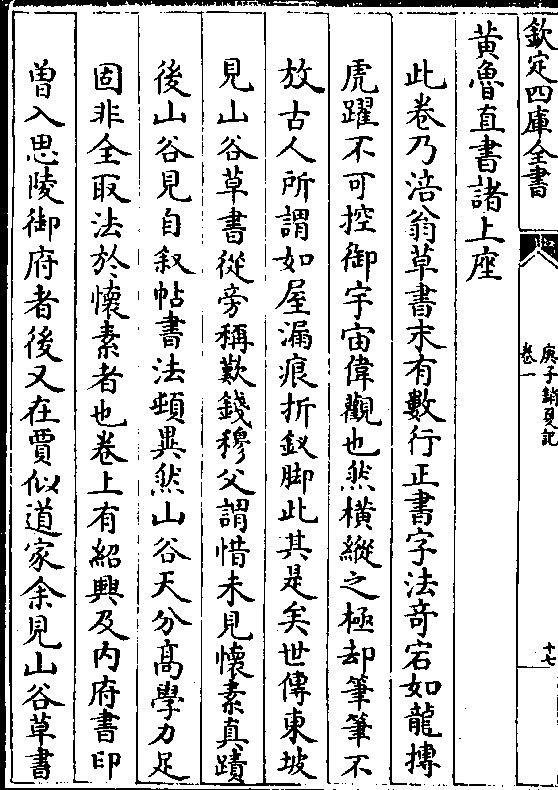 欽定四庫全書
庚子銷夏記
卷一
十七
黄魯直書諸上座
此卷乃涪翁草書末有數行正書字法竒宕如龍摶
虎躍不可控御宇宙偉觀也然横縱之極却筆筆不
放古人所謂如屋漏痕折釵脚此其是矣世傳東坡
見山谷草書從旁稱歎錢穆父謂惜未見懷素真蹟
後山谷見自叙帖書法頓異然山谷天分髙學力足
固非全取法於懷素者也卷上有紹興及内府書印
曽入思陵御府者後又在賈似道家余見山谷草書